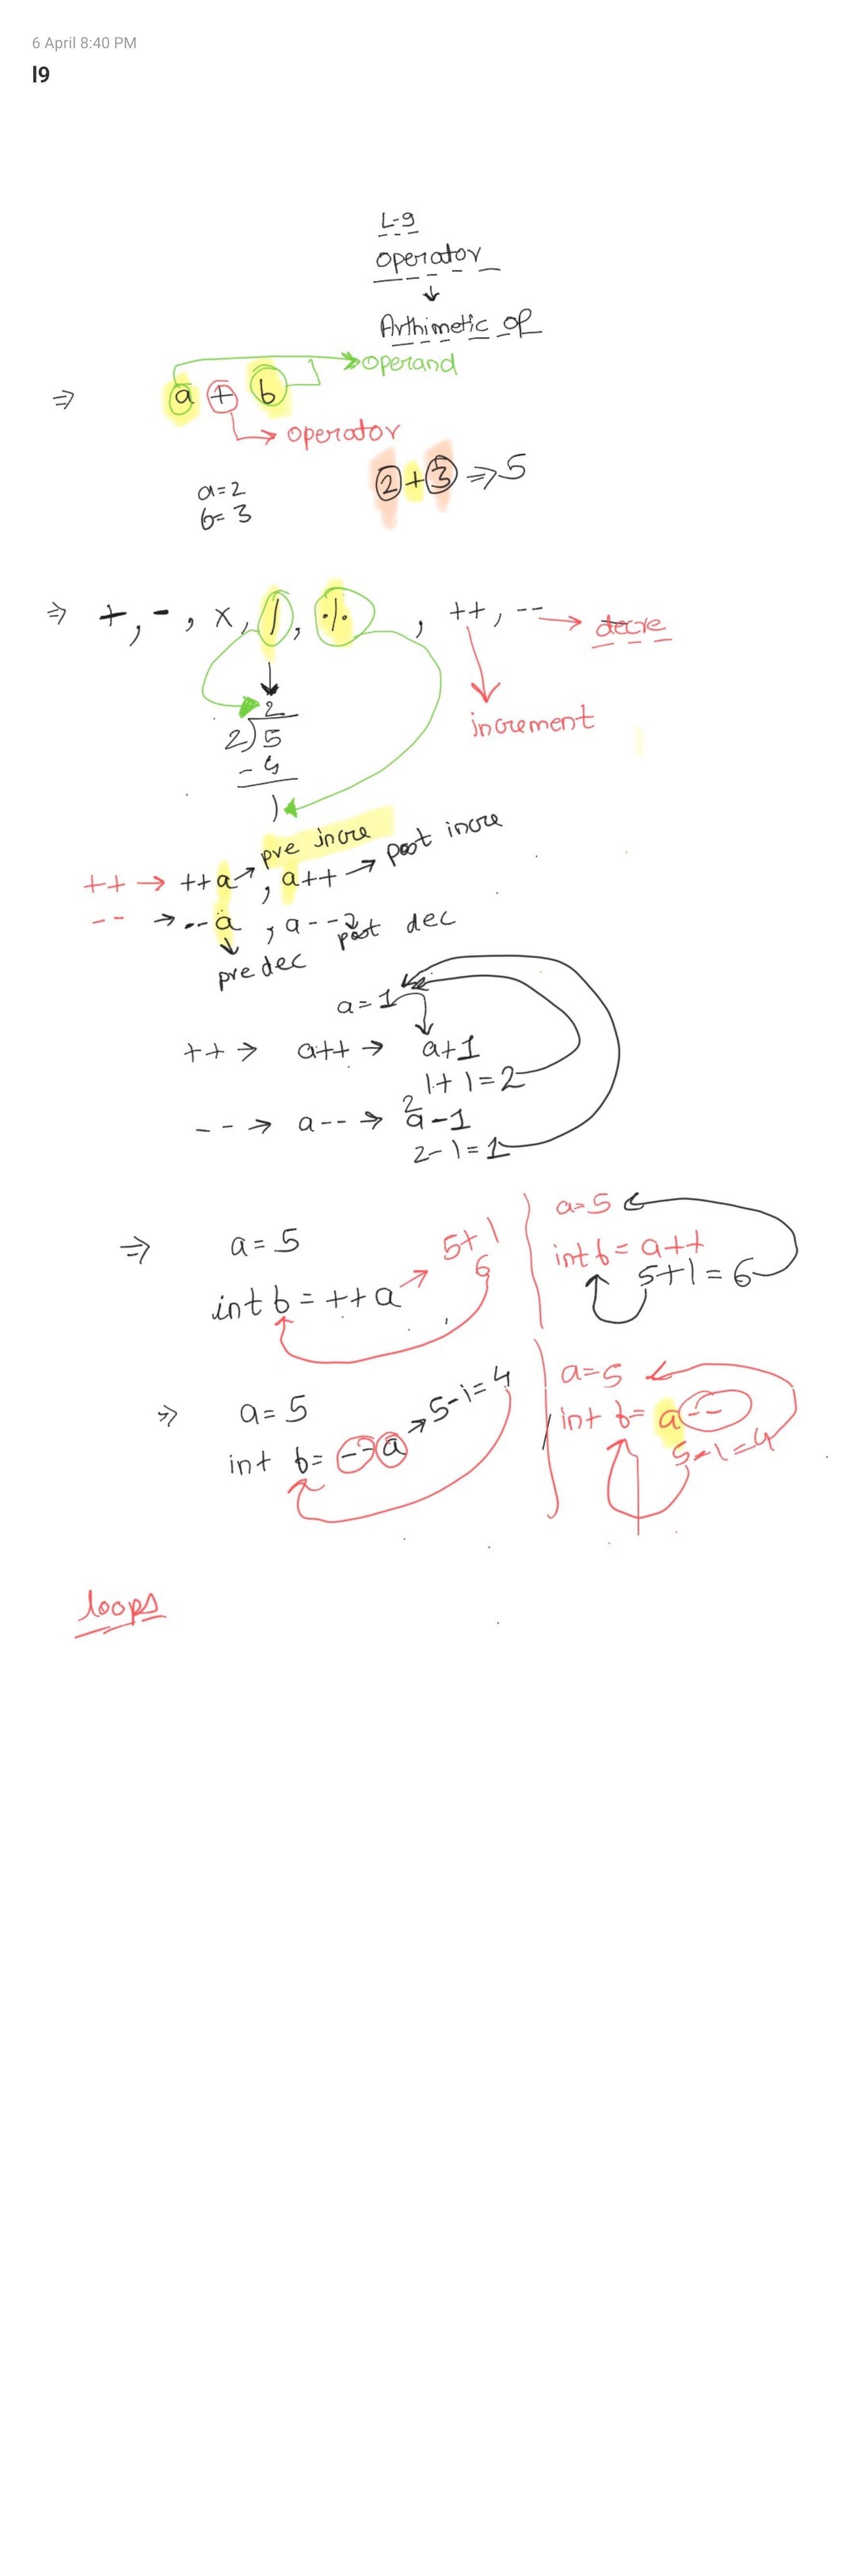 6 April 8:40 PM
l9
L-9
operator
↓
Arthimetic op
operand
⇒ a + b
operator
a=2
b=3
2+3 ⇒ 5
⇒ +, -, x, /, %, ++, -- → decre
increment
2
2)5
-4
1
++ → ++a → pre incre , a++ → post incre
-- → --a , a-- → post dec
pre dec
a=1
++ → a++ → a+1
1+1=2
2
-- → a-- → a-1
2-1=1
⇒ a=5
int b = ++a → 5+1
6
a=5
int b = a++
5+1=6
⇒ a=5
int b= --a → 5-1=4
a=5
int b= a--
5-1=4
loops